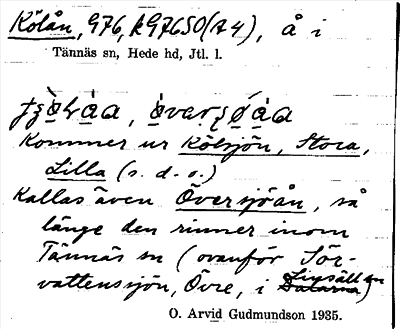 Kölån, 976, R97650(A4), å i
Tännäs sn, Hede hd, Jtl. l.
Kommer ur Kölsjön, Stora,
Lilla (s. d. o.)
Kallas även Översjöån, så
länge den rinner inom
Tännäs sn (ovanför Sör-
vattenssjön, Övre, i Dalarna)
O. Arvid Gudmundson 1935.